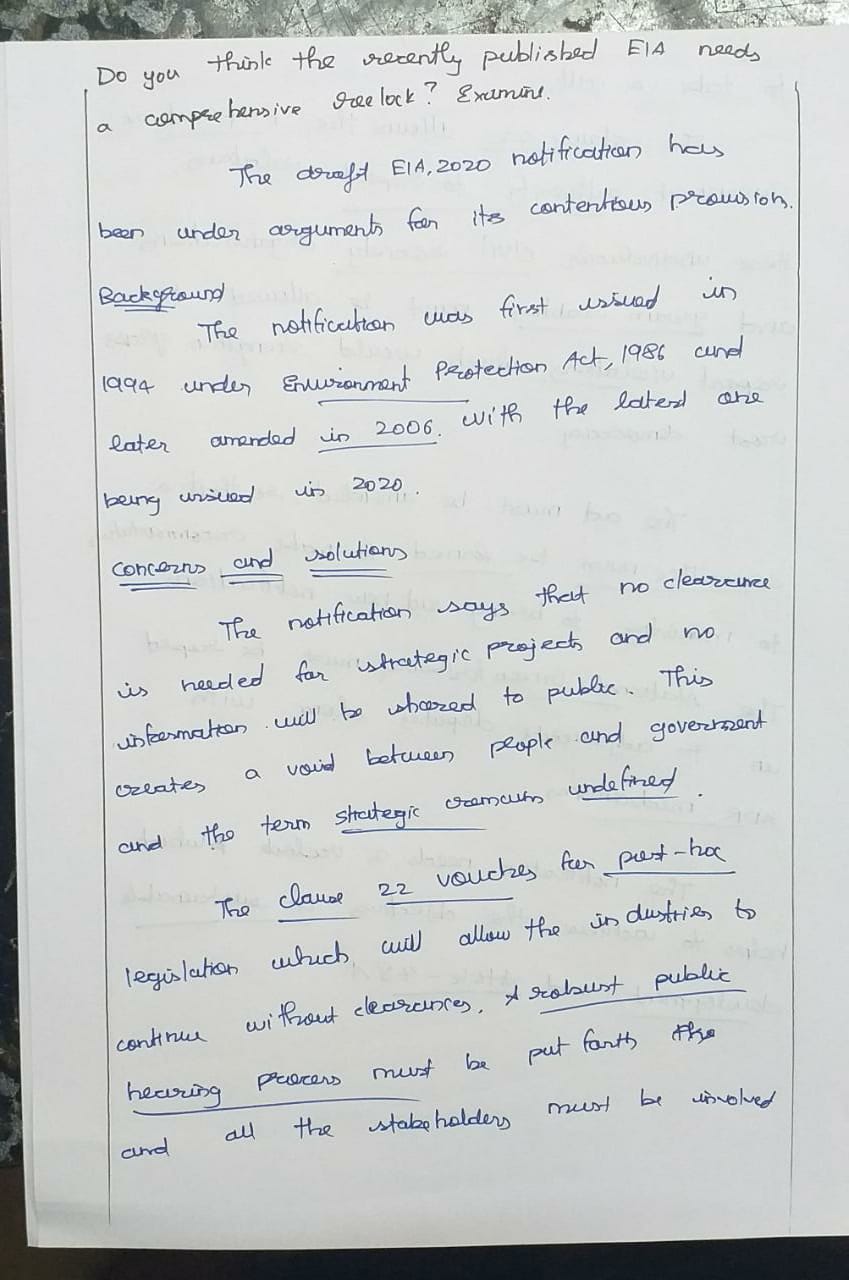 Do you think the recently published EIA needs
a comprehensive relook? Examine.
The draft EIA, 2020 notification has
been under arguments for its contentious provision.
Background
The notification was first issued in
1994 under Environment Protection Act, 1986 and
later amended in 2006. With the latest one
being issued in 2020.
Concerns and solutions
The notification says that no clearance
is needed for strategic projects and no
information will be shared to public. This
creates a void between people and government
and the term strategic remains undefined.
The clause 22 vouches for post-hoc
legislation which will allow the industries to
continue without clearances. A robust public
hearing process must be put forth the
and all the stakeholders must be involved